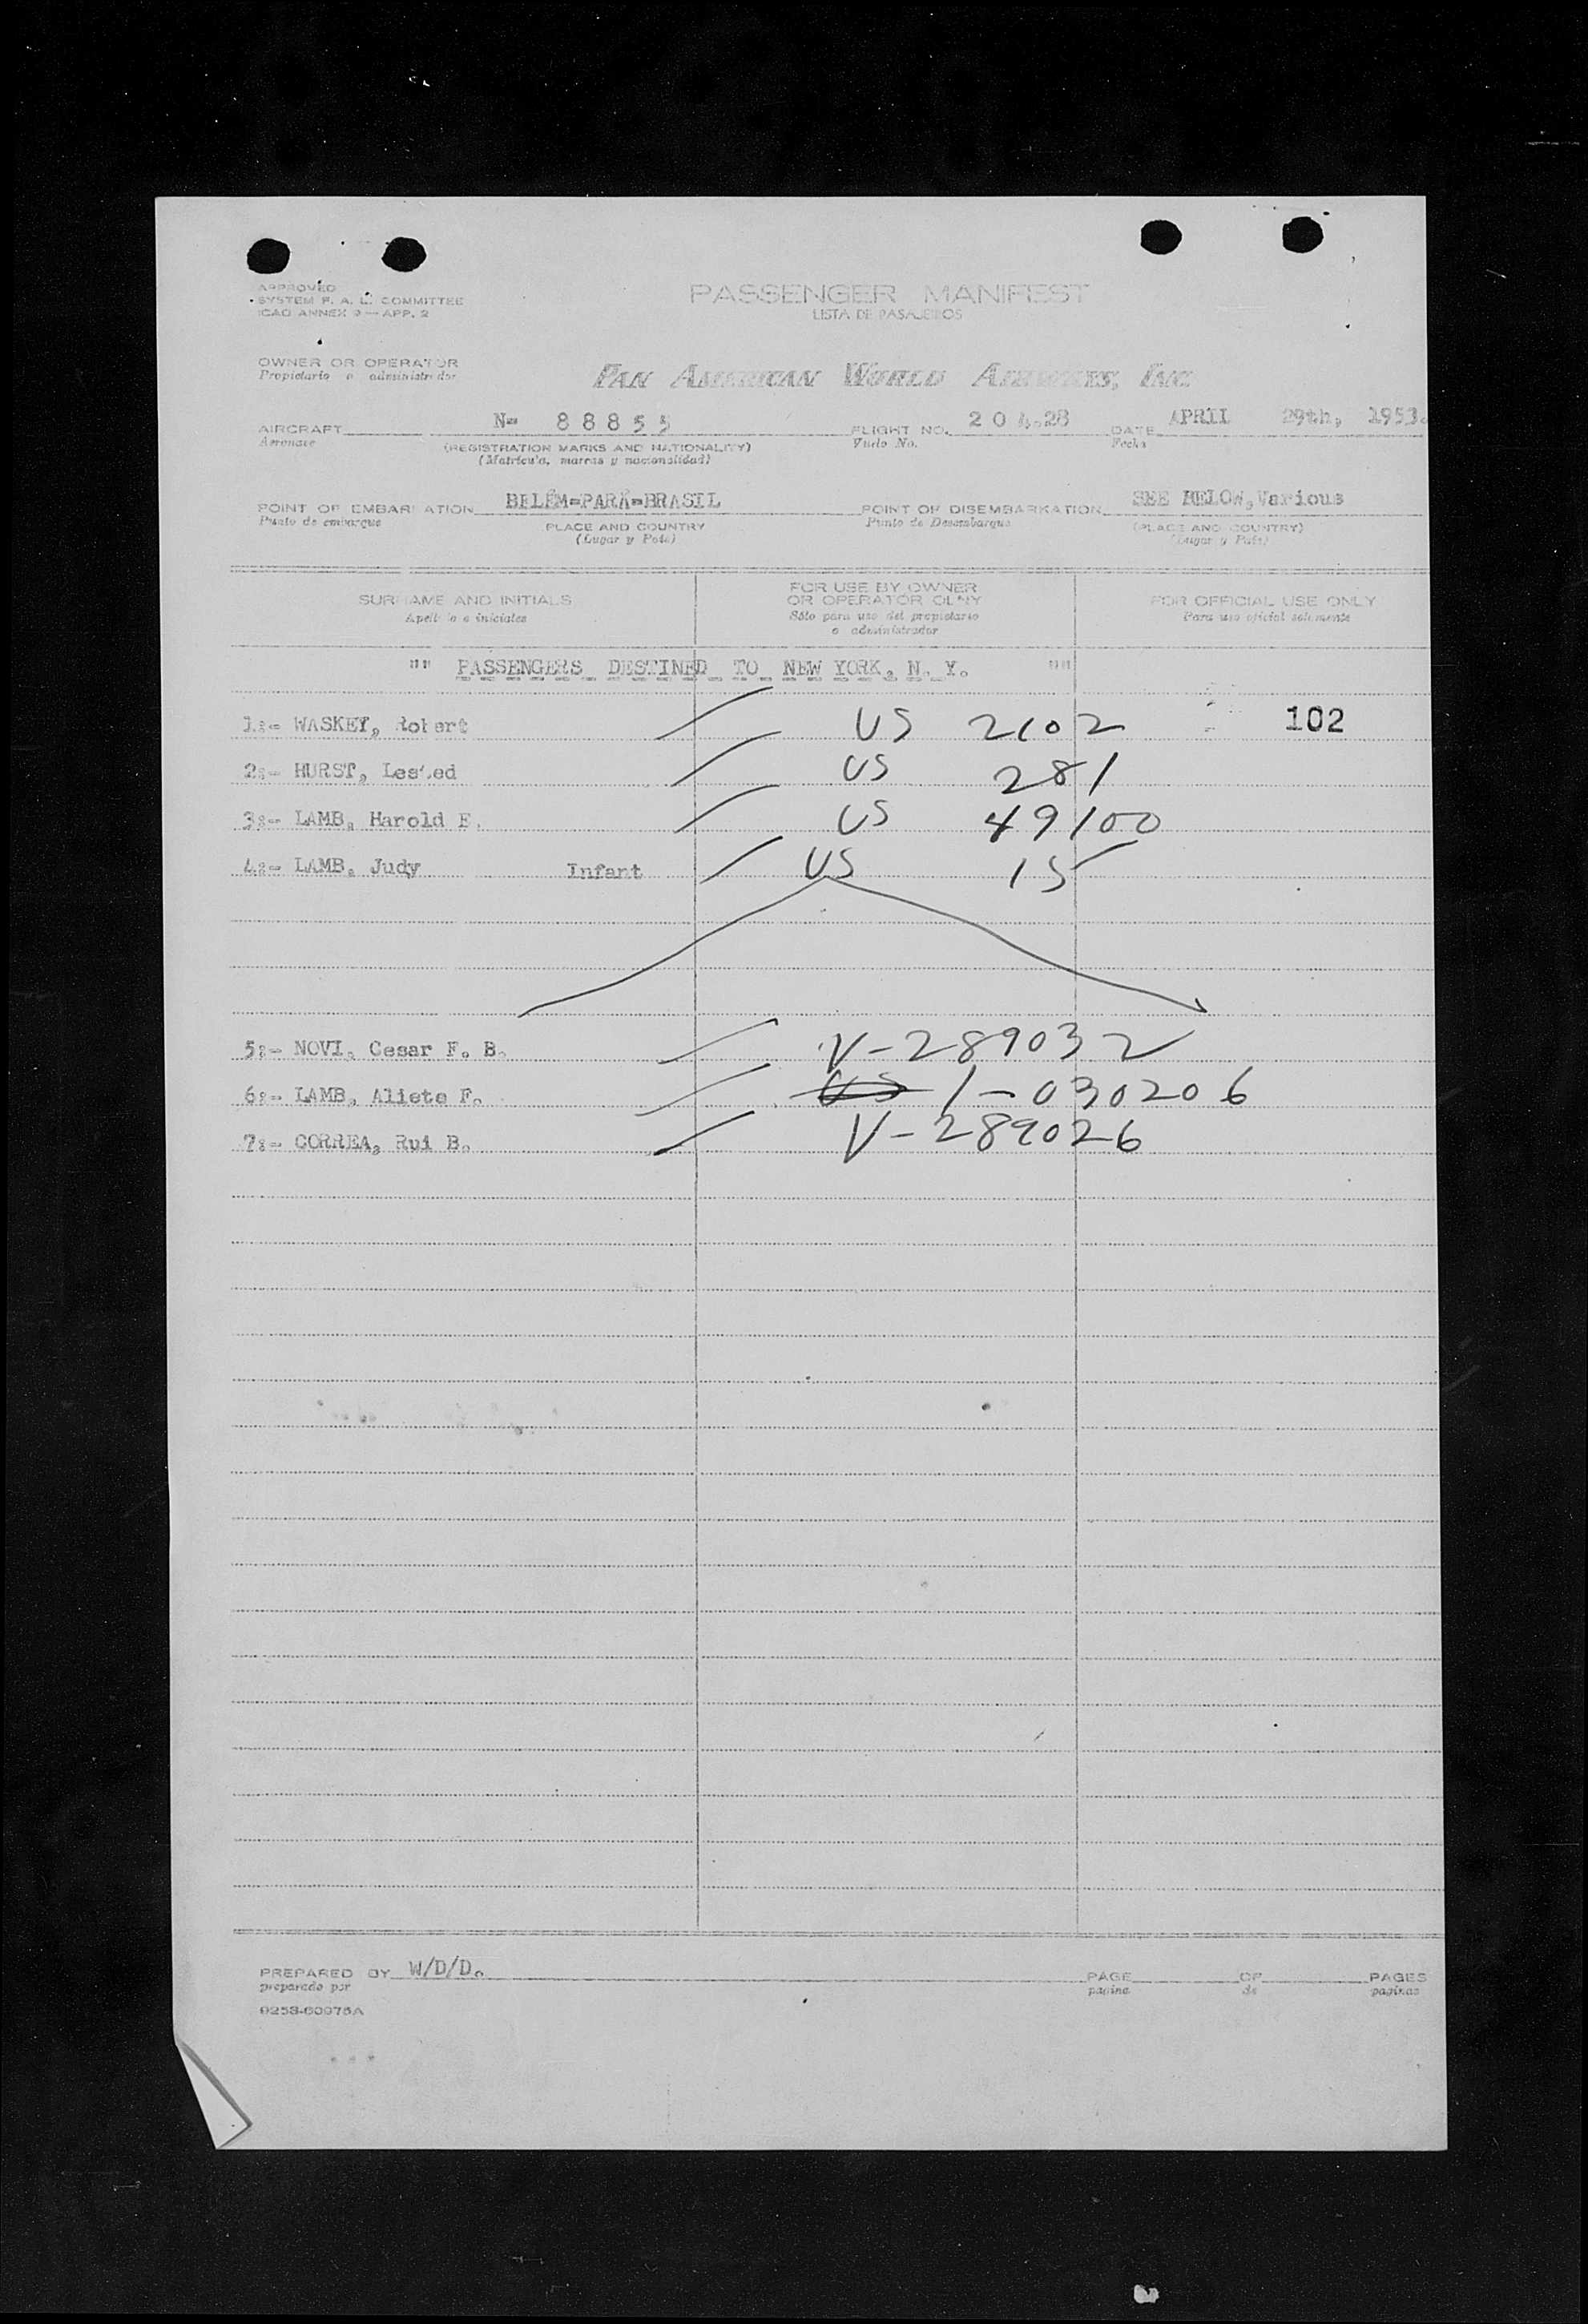 APPROVED
SYSTEM F. A. L. COMMITTEE
ICAO ANNEX 9 — APP. 2
PASSENGER MANIFEST
LISTA DE PASAJEROS
OWNER OR OPERATOR
Propietario o administrador
PAN AMERICAN WORLD AIRWAYS, INC
AIRCRAFT N- 88855 FLIGHT NO. 204.28 DATE APRIL 29th, 1953.
Aeronave (REGISTRATION MARKS AND NATIONALITY) Vuelo No. Fecha
(Matrícula, marcas y nacionalidad)
POINT OF EMBARKATION BELÉM=PARÁ=BRASIL POINT OF DISEMBARKATION SEE BELOW, Various
Punto de embarque PLACE AND COUNTRY Punto de Desembarque (PLACE AND COUNTRY)
(Lugar y País) (Lugar y País)
SURNAME AND INITIALS
Apellido e iniciales
FOR USE BY OWNER
OR OPERATOR OLNY
Sólo para uso del propietario
o administrador
FOR OFFICIAL USE ONLY
Para uso oficial solamente
"" PASSENGERS DESTINED TO NEW YORK, N. Y. ""
1:- WASKEY, Robert US 2102 102
2:- HURST, Lested US 281
3:- LAMB, Harold E. US 49100
4:- LAMB, Judy Infant US 15
5:- NOVI, Cesar F. B. V-289032
6:- LAMB, Aliete F. US 1-030206
7:- CORREA, Rui B. V-289026
PREPARED BY W/D/D. PAGE OF PAGES
preparado por pagina de paginas
9258-60975A